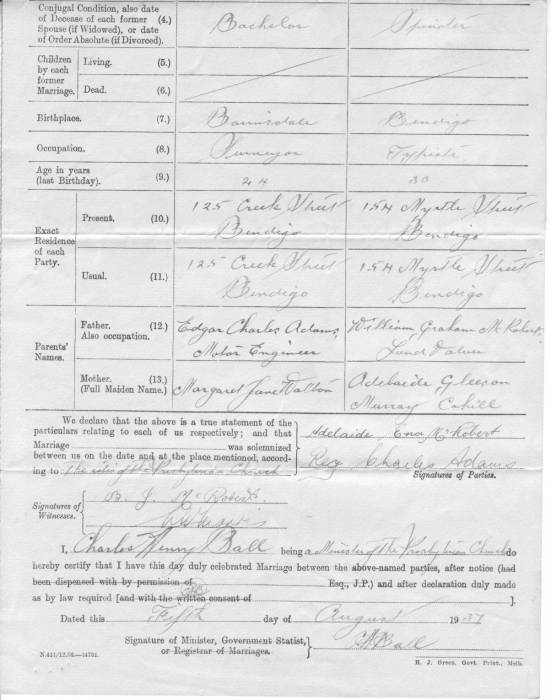 Conjugal Condition, also date of Decease of each former Spouse (if Widowed), or date of Order Absolute (if Divorced). (4.) Bachelor Spinster
Children by each former Marriage. Living. (5.)
Dead. (6.)
Birthplace. (7.) Bairnsdale Bendigo
Occupation. (8.) Surveyor Typiste
Age in years (last Birthday). (9.) 24 30
Exact Residence of each Party. Present. (10.) 125 Creek Street Bendigo 154 Myrtle Street Bendigo
Usual. (11.) 125 Creek Street Bendigo 154 Myrtle Street Bendigo
Parents' Names. Father. (12.) Also occupation. Edgar Charles Adams, Motor Engineer William Graham McRobert, Land Valuer
Mother. (13.) (Full Maiden Name.) Margaret Jane Walton Adelaide Gleeson Murray Cahill
We declare that the above is a true statement of the
particulars relating to each of us respectively; and that
Marriage was solemnized
between us on the date and at the place mentioned, accord-
ing to The rites of the Presbyterian Church
Adelaide Ena McRobert
Reg Charles Adams
Signatures of Parties.
Signatures of Witnesses.
B. J. McRobert
I, Charles Henry Ball being a Minister of the Presbyterian Church do
hereby certify that I have this day duly celebrated Marriage between the above-named parties, after notice (had
been dispensed with by permission of Esq., J.P.) and after declaration duly made
as by law required [and with the written consent of ].
Dated this Fifth day of August 1937
Signature of Minister, Government Statist, or Registrar of Marriages. C H Ball
N.411/12.36.—14701.
H. J. Green, Govt. Print., Melb.